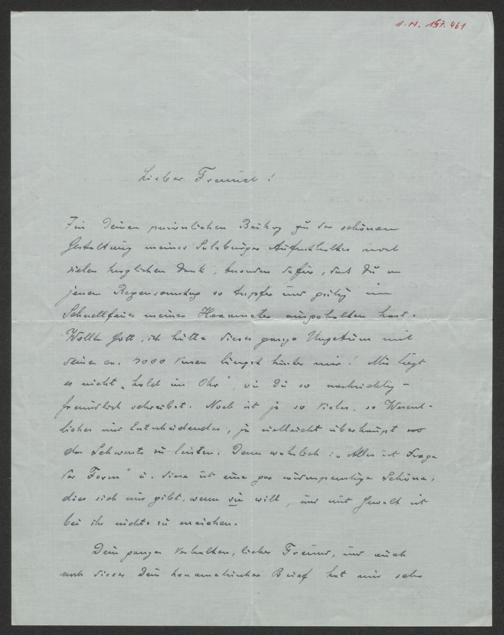 Lieber Freund!
Für Deinen persönlichen Beitrag zu der schönen
Gestaltung meines Salzburger Aufenthaltes noch
vielen herzlichen Dank, besonders dafür, dass Du an
jenem Regensonntag so tapfer und gütig im
Schnellfeuer meines Hexameter ausgehalten hast.
Wollte Gott, ich hätte dieses ganze Ungetüm mit
seinen ca. 7000 Versen längst hinter mir! Mir liegt
es nicht „hold im Ohr", wie Du so nachsichtig-
freundlich schreibst. Noch ist ja so Vieles, so Wesent-
liches und Entscheidendes, ja vielleicht überhaupt
das Schwerste zu leisten. Denn wahrlich „in Allem ist Frage
der Form" u. diese ist eine gar Schöne,
die sich nur gibt, wenn sie will, und mit Gewalt ist
bei ihr nichts zu erreichen.
Dein ganzes Verhalten, lieber Freund, und auch
noch dieser Dein Brief hat mir sehr